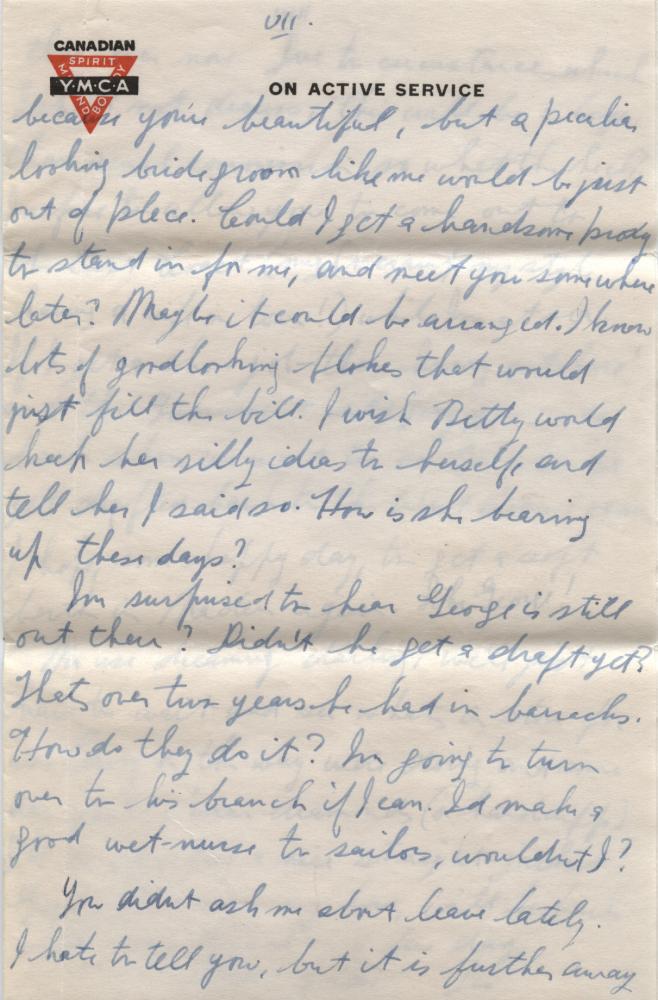 VII.
CANADIAN
SPIRIT
MIND
BODY
Y·M·C·A
ON ACTIVE SERVICE
because you're beautiful, but a peculiar
looking bridegroom like me would be just
out of place. Could I get a handsome proxy
to stand in for me, and meet you somewhere
later? Maybe it could be arranged. I know
lots of goodlooking blokes that would
just fill the bill. I wish Betty would
keep her silly ideas to herself, and
tell her I said so. How is she bearing
up these days?
Im surprised to hear George is still
out there? Didn't he get a draft yet?
Thats over two years he had in barracks.
How do they do it? Im going to turn
over to his branch if I can. Id make a
good wet-nurse to sailors, wouldnt I?
You didnt ask me about leave lately.
I hate to tell you, but it is further away